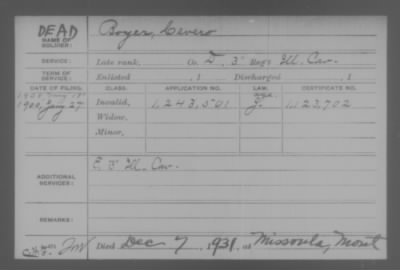 DEAD
NAME OF SOLDIER: Boyer, Cevero
SERVICE: Late rank, Co. D. 3" Reg't Ill. Cav.
TERM OF SERVICE: Enlisted , 1 Discharged , 1
DATE OF FILING. CLASS. APPLICATION NO. LAW. CERTIFICATE NO.
1900, Jany 27 Invalid, 1,243,501 G. 1,123,702
Widow,
Minor,
ADDITIONAL SERVICES: E. 3" Ill. Cav.
REMARKS:
Died Dec 7, 1931, at Missoula, Mont